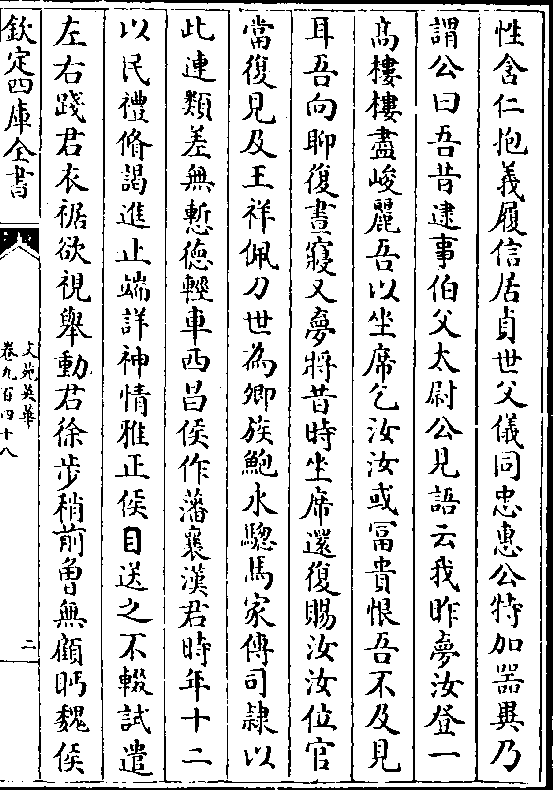 性含仁抱義履信居貞世父儀同忠惠公特加器異乃
謂公曰吾昔逮事伯父太尉公見語云我昨夢汝登一
髙樓樓盡峻麗吾以坐席乞汝汝或冨貴恨吾不及見
耳吾向聊復晝寢又夢將昔時坐席還復賜汝汝位官
當復見及王祥佩刀世為卿族鮑永驄馬家傳司隷以
此連類差無慙德輕車西昌侯作藩襄漢君時年十二
以民禮脩謁進止端詳神情雅正侯目送之不輟試遣
左右踐君衣裾欲視舉動君徐步稍前曾無顧眄魏侯
欽定四庫全書
文苑英華
卷九百四十八
二